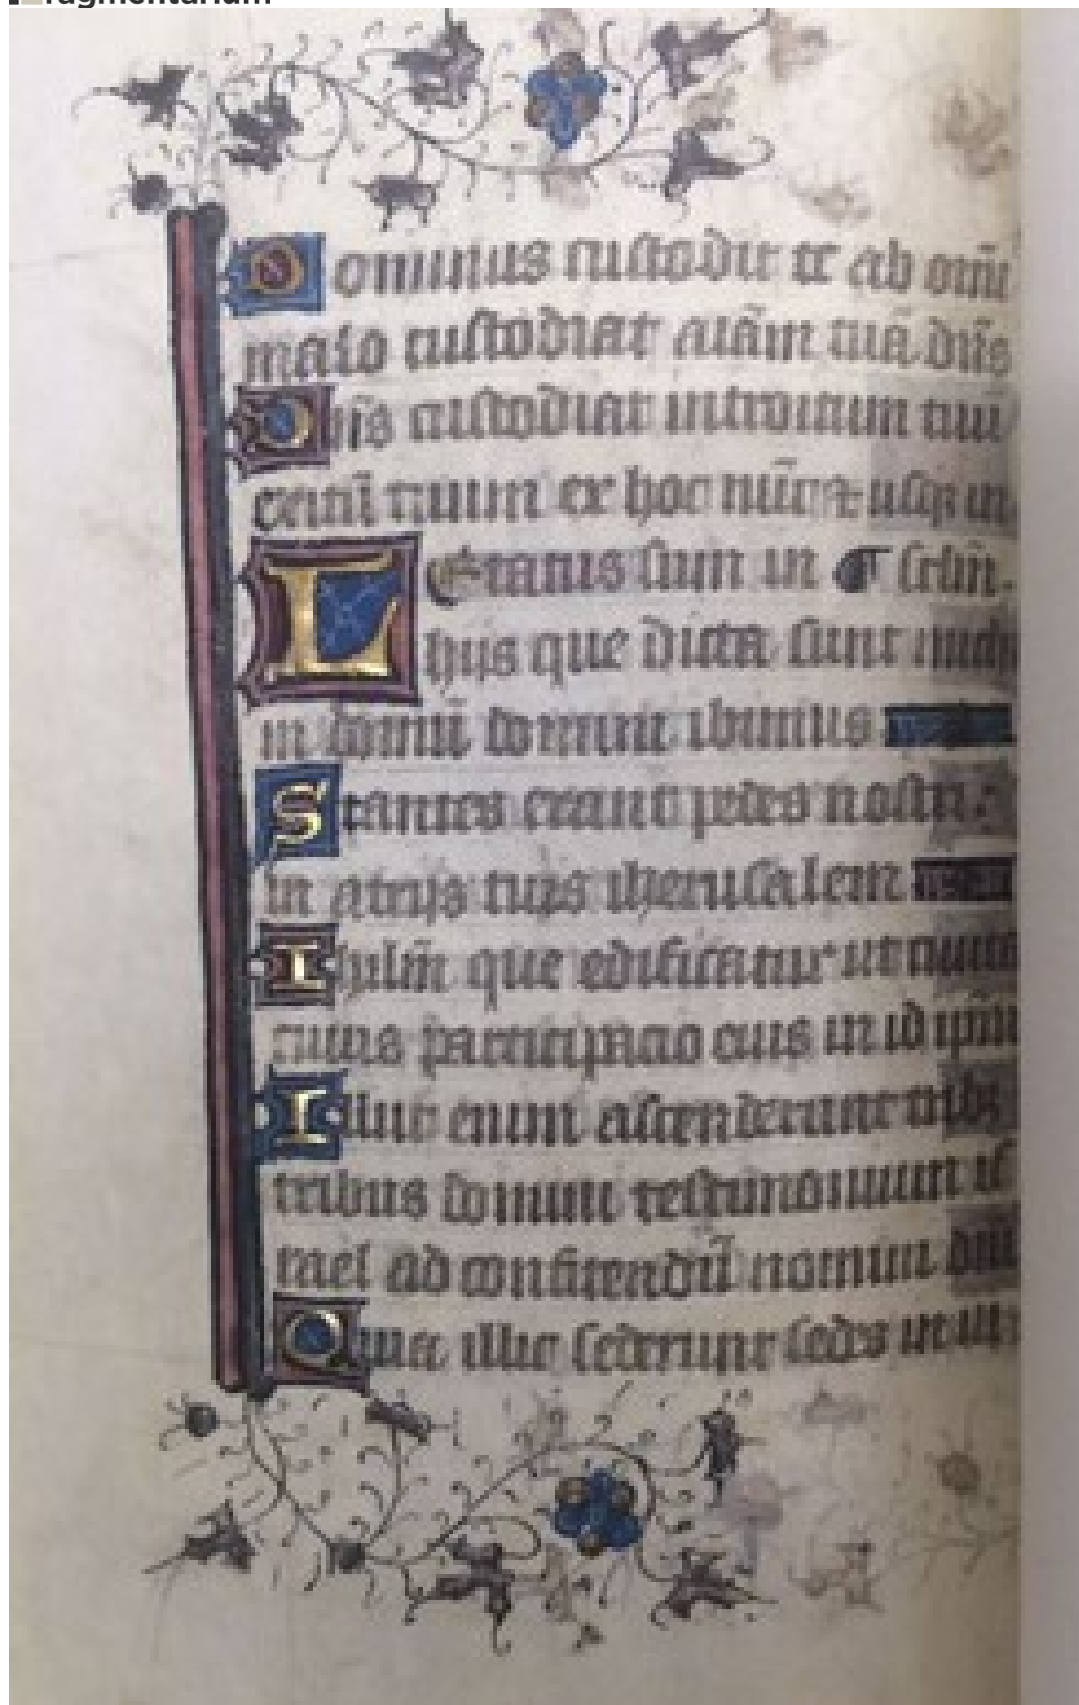 Fragmentarium
Dominus custodit te ab om̄i
malo custodiat aīam tuā dn̄s
Dn̄s custodiat introitum tuū
exitū tuum ex hoc nūc ⁊ usqꝫ in
Letatus sum in
hijs que dicta sunt michi
in domū domini ibimus
Stantes erant pedes nostri
in atrijs tuis iherusalem
Ihrlm̄ que edificatur ut ciuitas
cuius participacio eius in id ip̄m
Illuc enim ascenderunt tribꝫ
tribus domini testimonium is
rael ad confitendū nomini dn̄i
Quia illic sederunt sedes in